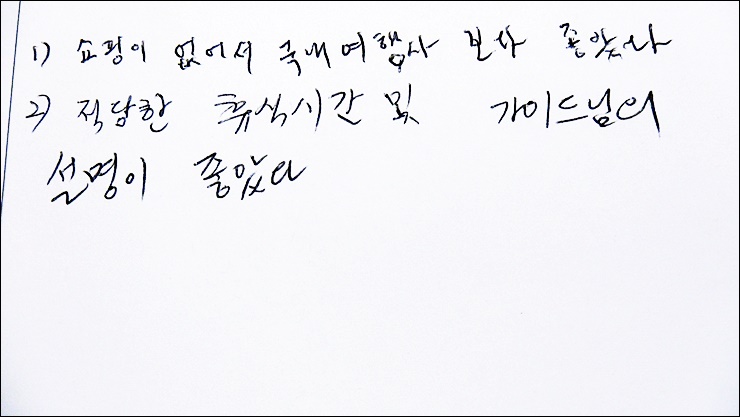 1) 쇼핑이 없어서 국내여행사 보다 좋았다
2) 적당한 휴식시간 및 가이드님의
설명이 좋았다